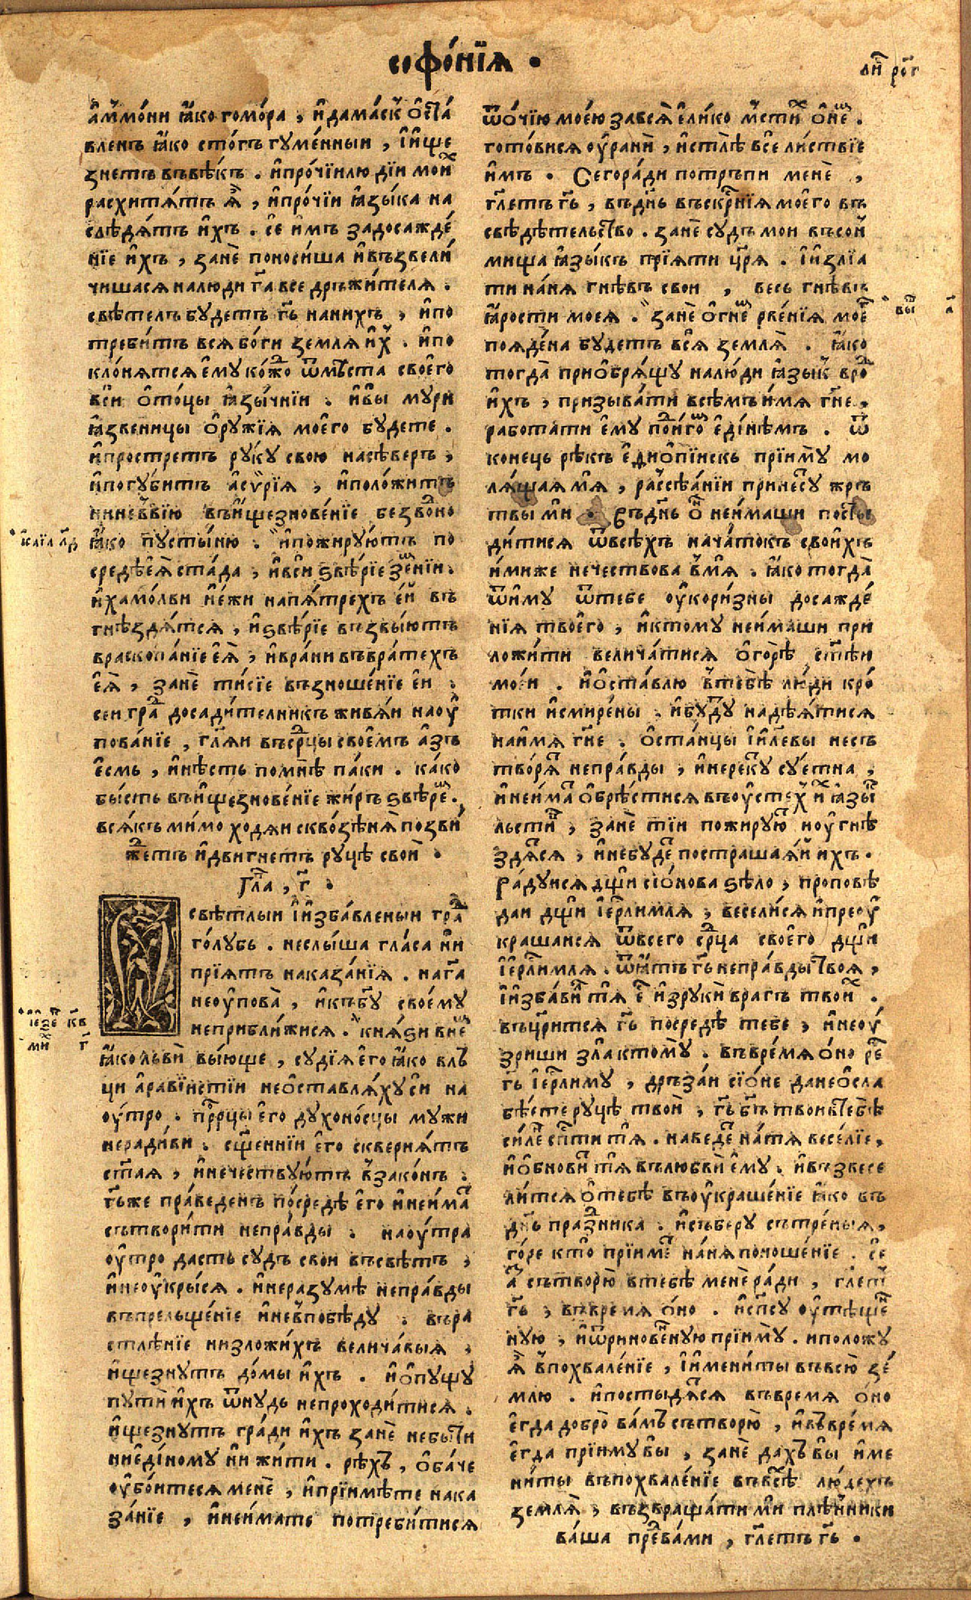 софо́нїꙗ .
ли҃ ро҃г
а҆ммо́ни ꙗ҆́ко гомо́ра , и҆ дама́скъ ѡ҆ста́
вленъ ꙗ҆́ко сто́гъ гуме́нныи , и҆ и҆ще
знетъ въ вѣ́къ . и҆ про́чїи лю́дїи мои́х
расхи́тѧтъ ѧ҆̀ , и҆ про́чїи ꙗ҆зы́ка на
слѣ́дѧтъ и҆́хъ . се и҆́мъ за досажде́
нїе и҆́хъ , занѐ поноси́ша и҆ възвели́
чишасѧ на лю́ди гс҃а все дръжи́телѧ .
свѣ́телъ бу́детъ гс҃ь на ни́хъ , и҆ по
треби́тъ всѧ бо́ги землѧ̀ и҆́х . и҆ по
кло́нѧтсѧ є҆му̀ ко́ждо ѿ мѣ́ста своего̀
вси̑ ѻ҆́тоцы ꙗ҆зы́чнїи . и҆ вы̀ мури
ꙗ҆́звеницы ѻ҆ру́жїѧ моего̀ бу́дете .
и҆ простре́тъ ру́ку свою̀ на сѣ́веръ ,
и҆ погуби́тъ а҆сѵ́рїѧ , и҆ положи́тъ
ниневві́ю въ и҆щезнове́нїе безво́дно
ꙗ҆́ко пусты́ню . и҆ пожиру́ютъ по
средѣ̀ є҆ѧ̀ стада̀ , и҆ вси̑ ѕвѣ́рїе земнїи .
и҆ хамо́льви и҆ е҆́жи на пѧ́трехъ е҆и̑ въ
гнѣ́здѧтсѧ , и҆ ѕвѣ́рїе възвы́ютъ
в раскопа́нїе є҆ѧ̀ , и҆ вра́ни въ врате́хъ
є҆ѧ̀ , занѐ ти́сїе възноше́нїе е҆и̑ .
сеи гра́д досади́телникъ живы́и на оу҆
пова́нїе , гл҃ѧи въ срд҃цы свое́мъ а҆́зъ
є҆́смь , и҆ нѣ́сть по мнѣ̀ па́ки . ка́ко
бы́сть въ и҆щезнове́нїе жи́ръ ѕвѣре́м .
всѧ́къ ми́мо ходѧ́и сквозѣ́ нѧ̀ позви́
ждетъ и҆ дви́гнетъ ру́цѣ свои̑ .
гла , г҃ .
свѣ́тлыи и҆ и҆зба́вленыи гра́д
го́лубь . не слы́ша гла́са ни
прїѧ́тъ наказа́нїѧ . на гс҃а
не оу҆пова̀ , и҆ къ бг҃у своему
не прибли́жисѧ . кнѧ́ѕи в не́м
ꙗ҆́ко льви̑ вы́юще , судїѧ̀ є҆го̀ ꙗ҆́ко влъ́
ци а҆рави́истїи не ѡ҆ставлѧ́хуси на
оу҆́тро . прр҃цы є҆го̀ духоно́сцы мужи
неради́ви . сщ҃е́ннїи є҆го̀ сквернѧ́тъ
ст҃а́ѧ , и҆ нече́ствуютъ в зако́нъ .
гс҃ь же пра́веденъ посредѣ̀ є҆го̀ и҆ не и҆́мать
сътвори́ти непра́вды . на оу҆́тра
оу҆́тро дасть су́дъ свои въ свѣ́тъ ,
и҆ не оу҆кры́сѧ . и҆ не разумѣ̀ непра́вды
въ прельще́нїе и҆ не в побѣ́ду . въ ра
стлѣ́нїе низложи́хъ велича́выѧ ,
и҆ще́знутъ до́мы и҆́хъ . и҆ ѡ҆пущу̀
пути̑ и҆́хъ ѿину́дь не проходи́тисѧ .
и҆ще́знутъ гра́ди и҆́хъ занѐ не бы́ти
ни є҆ди́ному ни жи́ти . рѣ́хъ , ѻ҆ба́че
оу҆бо́итесѧ менѐ , и҆ прїими́те нака
за́нїе , и҆ не и҆́мате потреби́тисѧ
и҆са́їа л҃д
їезе́к к҃в
мих г҃
ѿ о́чїю мое́ю за всѧ̀ є҆ли́ко мсти́х ѡ҆ не́м .
гото́висѧ оу҆ра́ни , и҆стлѣ̀ всѐ ли́ствїе
и҆́мъ . Сего ра́ди потръпи менѐ ,
гл҃етъ гс҃ь , въ дн҃ь въскр҃нїѧ моего въ
свѣдѣ́телство . занѐ су́дъ мои въ со́и
мища ꙗ҆зы́къ прїѧ́ти цр҃ѧ . и҆ и҆злїа
ти на нѧ̀ гнѣ́въ свои , весь гнѣ́въ
ꙗ҆́рости моеѧ̀ . занѐ ѻ҆гне́м рве́нїѧ моего̀
пояде́на бу́детъ всѧ̀ землѧ̀ . ꙗ҆́ко
тогда̀ приѡ҆брѧ́щу на лю́ди ꙗ҆зы́к в ро́д
и҆́хъ , призыва́ти всѣ́мъ и҆́мѧ гс҃не ,
рабо́тати є҆му̀ под и҆́гом є҆ди́нѣмъ . ѿ
коне́ць рѣ́къ є҆ѳио́пїискъ прїиму̀ мо
лѧ́щаѧ мѧ̀ , разсѣ́ѧнїи принесу́ жръ
твы ми . Въ дн҃ь ѻ҆́н не и҆́маши посты
ди́тисѧ ѿ всѣ́хъ нача́токъ свои́хъ
и҆́миже нече́ствова в мѧ̀ . ꙗ҆́ко тогда̀
ѿиму̀ ѿ тебѐ оу҆кори́зны досажде́
нїѧ твоего̀ , и҆ ктому̀ не и҆́маши при
ложи́ти велича́тисѧ ѻ҆ горѣ̀ ст҃ѣи
мое́и . и҆ ѡ҆ста́влю в тебѣ̀ лю́ди кро́
тки и҆ смире́ны . и҆ бу́дут надѣ́ѧтисѧ
на и҆́мѧ гс҃не . ѻ҆ста́нцы і҆и҃левы не съ
творѧ́т непра́вды , и҆ не реку́т су́етна ,
и҆ не и҆́мат ѡ҆брѣ́стисѧ въ оу҆сте́х и҆х ꙗ҆зы́к
льсти́в , занѐ тїи пожиру́ют и҆ оу҆гнѣ
здѧ́тсѧ , и҆ не бу́дет пострашаѧ́и и҆́хъ .
Ра́дуисѧ дщ҃и сїо́нова ѕѣло̀ , проповѣ
даи дщ҃и і҆ерл҃имлѧ , весели́сѧ и҆ преоу҆
краша́исѧ ѿ всего̀ срд҃ца своего̀ дщ҃и
і҆ерл҃имлѧ . ѿѧ́тъ гс҃ь непра́вды твоѧ ,
и҆ и҆зба́вит тѧ є҆ст и҆з руки̑ вра́гъ твои́х .
въцр҃итсѧ гс҃ь посредѣ̀ тебе , и҆ не оу҆́
зриши зла̀ ктому̀ . въ вре́мѧ ѻ҆́но рече
гс҃ь і҆ерл҃иму , дръза́и сїо́не да не ѡ҆сла
бѣ́ете ру́цѣ твои̑ , гс҃ь бг҃ъ твои в тебѣ̀
си́ленъ сп҃сти тѧ̀ . наведе́т на тѧ весе́лїе ,
и҆ ѡ҆бнови́т тѧ въ любви̑ є҆му . и҆ възвесе
ли́тсѧ ѻ҆ тебѣ̀ въ оу҆краше́нїе ꙗ҆́ко въ
дн҃ь пра́здника . и҆ съберу̀ сътре́ныѧ ,
го́ре кто̀ прїиме́т на нѧ̀ поноше́нїе . се
а҆́з сътворю̀ в тебѣ̀ мене ра́ди , гл҃етъ
гс҃ь , въ вре́мѧ ѻ҆́но . и҆ сп҃су оу҆тѣще́н
ную , и҆ ѿринове́нную прїиму̀ . и положу
ѧ҆̀ в похвале́нїе , и҆ и҆мени́ты въ всю̀ зе́
млю . и҆ постыдѧ́тсѧ въ время ѻ҆́но
є҆гда добро̀ ва́мъ сътворю̀ , и҆ въ вре́мѧ
є҆гда прїиму вы̀ , занѐ да́хъ вы̀ и҆ме
ни́ты въ похвале́нїе въ всѣ́х лю́дехъ
землѧ̀ , възвраща́ти ми плѣ́нники
ва́ша пред ва́ми , гл҃етъ гс҃ь .